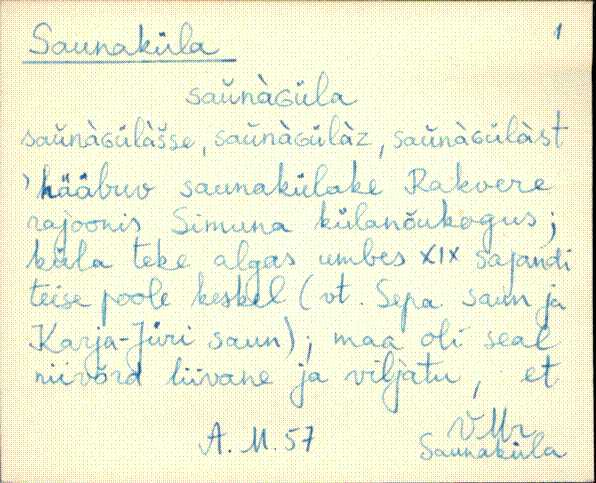 Saunaküla 1
saŭnàGüla
saŭnàGülàšse, saŭnàGülàz, saŭnàGülàst
'hääbuv saunakülake Rakvere
rajoonis Simuna külanõukogus;
küla teke algas umbes XIX sajandi
teise poole keskel (vt. Sepa saun ja
Karja-Jüri saun); maa oli seal
niivõrd liivane ja viljatu, et
A. M. 57 VMr
Saunaküla